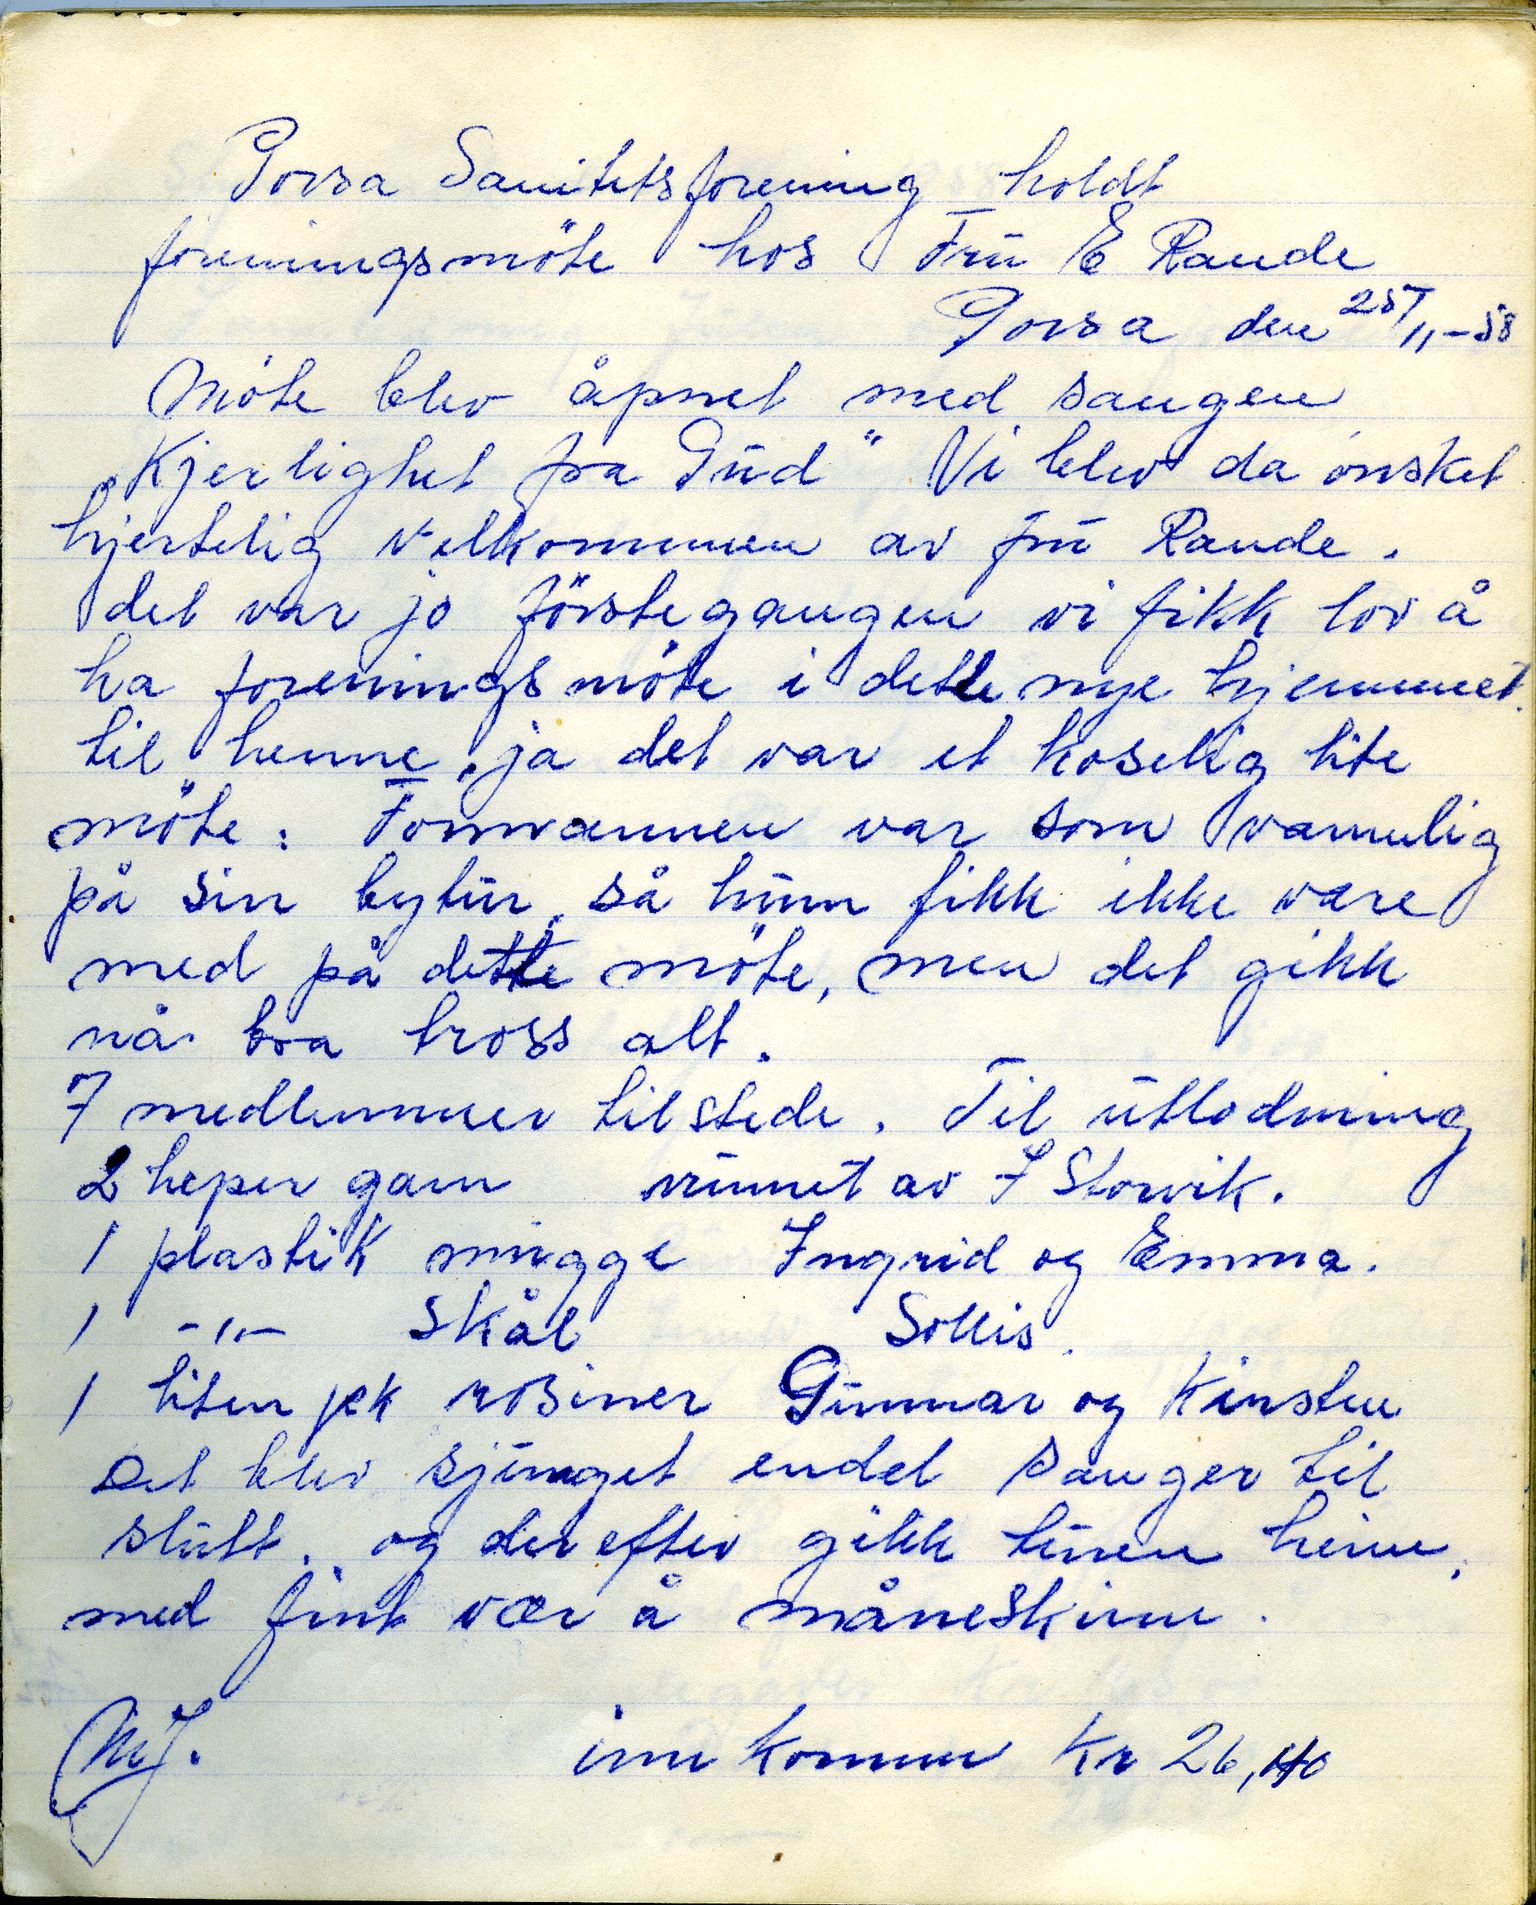 Porsa Sanitetsforening holdt
foreningsmöte hos Frū E Rande
Porsa den 25/11-58
Möte blev åpnet med sangen
„Kjerlighet fra Gūd" Vi blev da ønsket
hjertelig velkommen av frū Rande.
det var jo förstegangen vi fikk lov å
ha foreningsmöte i dette nye hjemmet.
til henne, ja det var et koselig lite
möte. Formannen var som vannlig
på sin bytūr, så hūnn fikk ikke være
med på dette möte, men det gikk
nå bra tross alt.
7 medlemmer tilstede. Til ūtlodning
2 heper garn vūnnet av I Storvik.
1 plastik mūgge Ingrid og Emma.
1 -"- skål Sollis.
1 liten pk rosiner Gūnnar og Kirsten
Det blev sjūnget endel sanger til
slūtt. og derefter gikk tūren hiem,
med fint vær å måneskinn.
M.J. inn kommen Kr 26,40